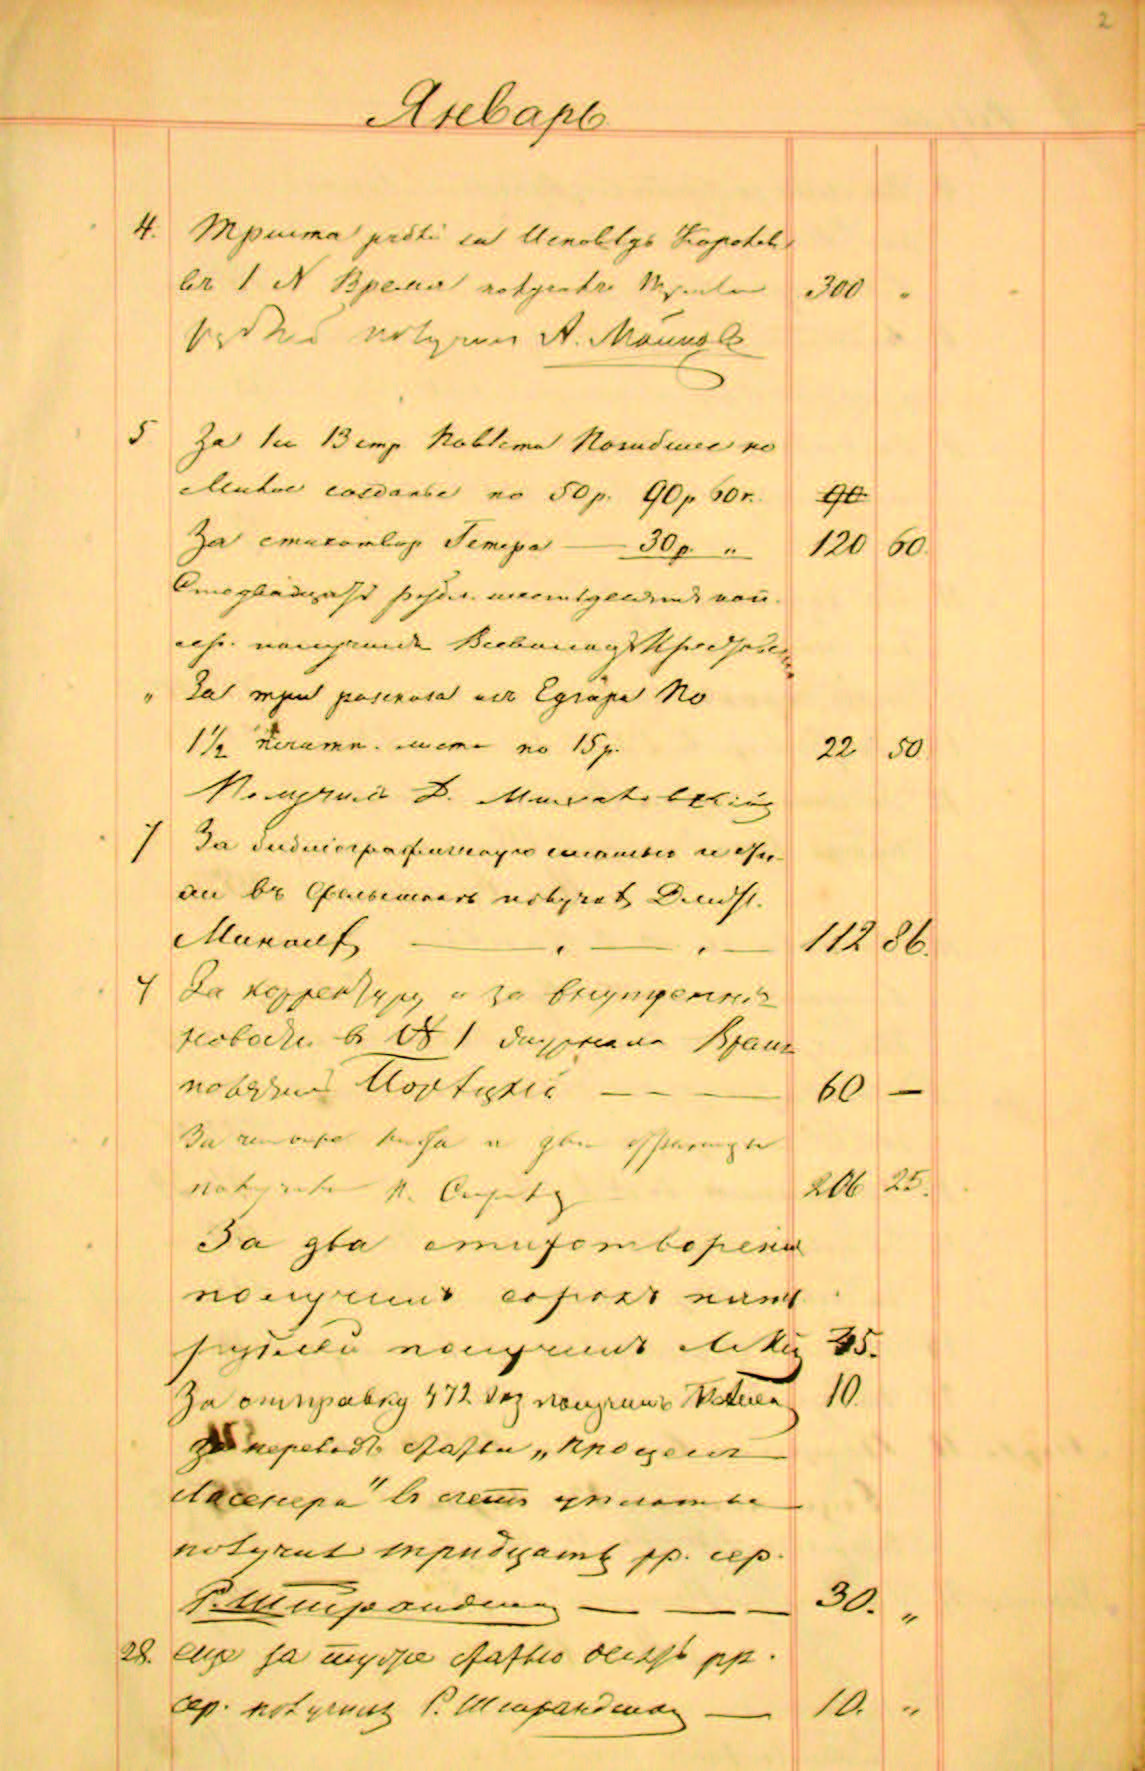 2
Январь
4. Триста рублей за Исповедь Королев
въ 1 N Время получилъ 300 "
рублей получилъ А. Майковъ
5 За 1 и 13 стр Повести Погибшее но
Милое созданье по 50 р. 90 р 60 к. 90
За стихотвор Гетера — 30 р. " 120 60.
Сто двадцать рубл. шестьдесятъ коп.
сер. получилъ Всеволодъ Крестовск
" За три разсказа изъ Едгара По
1 1/2 печатн. листа по 15 р. 22 50
Получилъ Д. Михаловскій
7 За библіографическую статью и
въ получилъ Дмитр.
Минаевъ — . — . — 112 86.
7 За корректуру и за внутренния
новости въ № 1 журнала Время
получилъ Порѣцкій — — — 60 —
За четыре листа и две страницы
получилъ Н. Страховъ 206 25.
За два стихотворенія
получилъ сорокъ пять
рублей получилъ 45.
За отправку 472 экз получилъ 10.
за переводъ статьи „Процессъ
Ласенера" въ счетъ уплаты
получилъ тридцать рр. сер.
Р. Штрандманъ — — — 30. „
28. еще за ту же статью десять рр.
сер. получилъ Р. Штрандманъ — 10. "